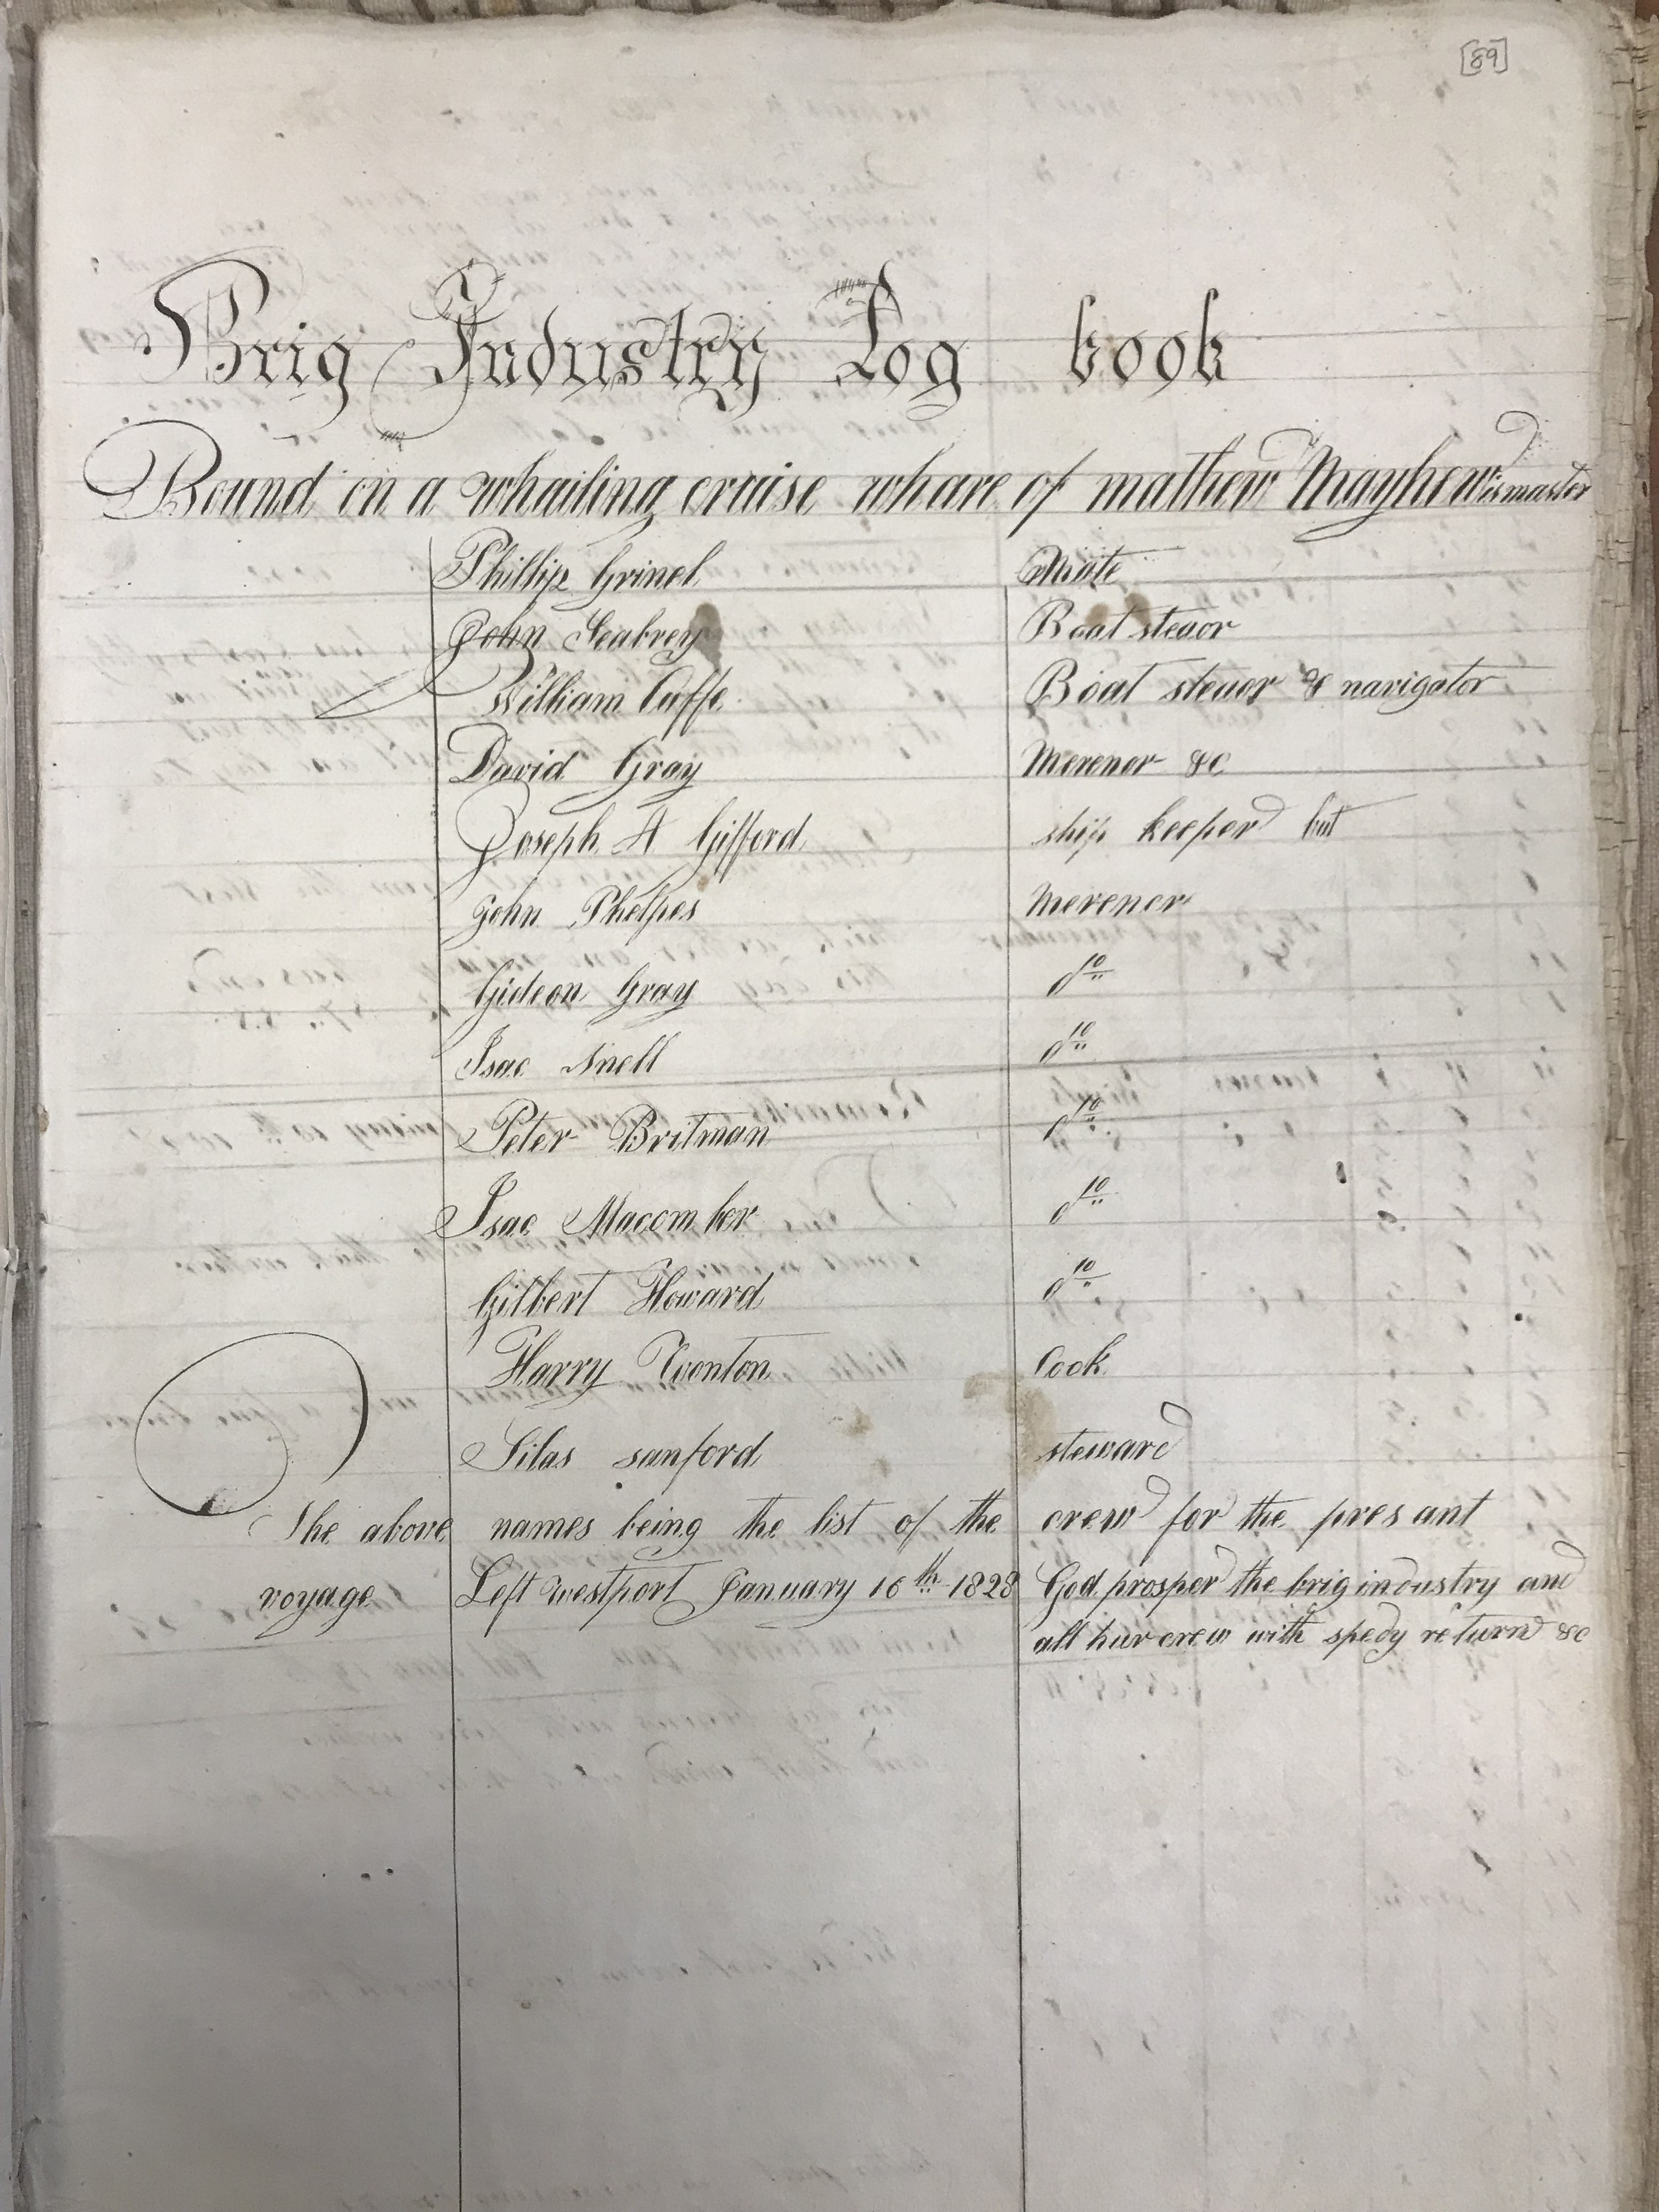 [89]
Brig Industry Log book
Bound on a whailing cruise whare of mathew Mayhew is master
Phillip Grinel Mate
John Seabrey Boat stearor
William Cuffe Boat stearor & navigator
David Gray Merener &c
Joseph A Gifford ship keeper but
John Phelpes Merener
Gideon Gray do
Isac Snell do
Peter Britman do
Isac Macomber do
Gilbert Howard do
Harry Wonton Cook
Silas sanford steward
The above names being the list of the crew for the pres ant
voyage Left westport January 16th 1828 God prosper the brig industry and
all hur crew with spedy return &c